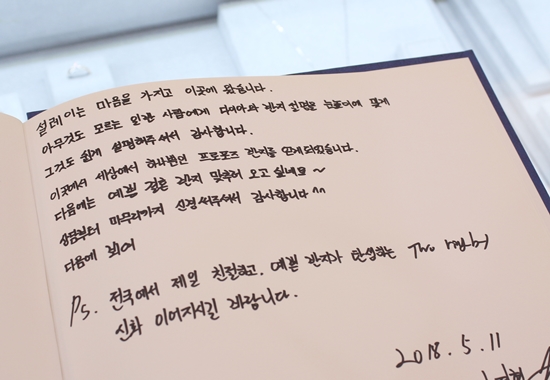 설레이는 마음을 가지고 이곳에 왔습니다.
아무것도 모르는 일반 사람에게 다이아와 반지 설명을 눈높이에 맞게
그것도 쉽게 설명해주셔서 감사합니다.
이곳에서 세상에서 하나뿐인 프로포즈 반지를 얻게되었습니다.
다음에는 예쁜 결혼 반지 맞추러 오고 싶네요 ~
상담부터 마무리까지 신경써주셔서 감사합니다 ^^
다음에 뵈어
Ps. 전국에서 제일 친절하고, 예쁜 반지가 탄생하는
신화 이어지시길 바랍니다.
2018. 5. 11